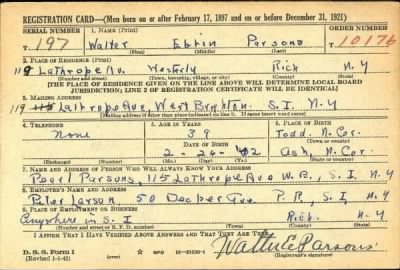 REGISTRATION CARD—(Men born on or after February 17, 1897 and on or before December 31, 1921)
SERIAL NUMBER 1. NAME (Print) ORDER NUMBER
T 197 Walter Ebbin Parsons 10176
(First) (Middle) (Last)
2. PLACE OF RESIDENCE (Print)
119 Lathrope Av. Westerly Rich N.Y
(Number and street) (Town, township, village, or city) (County) (State)
[THE PLACE OF RESIDENCE GIVEN ON THE LINE ABOVE WILL DETERMINE LOCAL BOARD
JURISDICTION; LINE 2 OF REGISTRATION CERTIFICATE WILL BE IDENTICAL]
3. MAILING ADDRESS
119 Lathrope Ave West Brighton. S.I. N.Y
[Mailing address if other than place indicated on line 2. If same insert word same]
4. TELEPHONE 5. AGE IN YEARS 6. PLACE OF BIRTH
None 39 Todd. N. Car.
DATE OF BIRTH (Town or county)
2-26-02 Ash, N. Car.
(Exchange) (Number) (Mo.) (Day) (Yr.) (State or country)
7. NAME AND ADDRESS OF PERSON WHO WILL ALWAYS KNOW YOUR ADDRESS
Pearl Parsons, 115 Lathrope Ave W.B., S.I. N.Y
8. EMPLOYER'S NAME AND ADDRESS
Peter Larson 50 Decker Ave. P.R., S.I N-Y
9. PLACE OF EMPLOYMENT OR BUSINESS
Anywhere in S.I Rich. N-Y
(Number and street or R. F. D. number) (Town) (County) (State)
I AFFIRM THAT I HAVE VERIFIED ABOVE ANSWERS AND THAT THEY ARE TRUE.
D. S. S. Form 1
(Revised 1-1-42) GPO 16—21630-1
Walter E Parsons
(Registrant's signature)